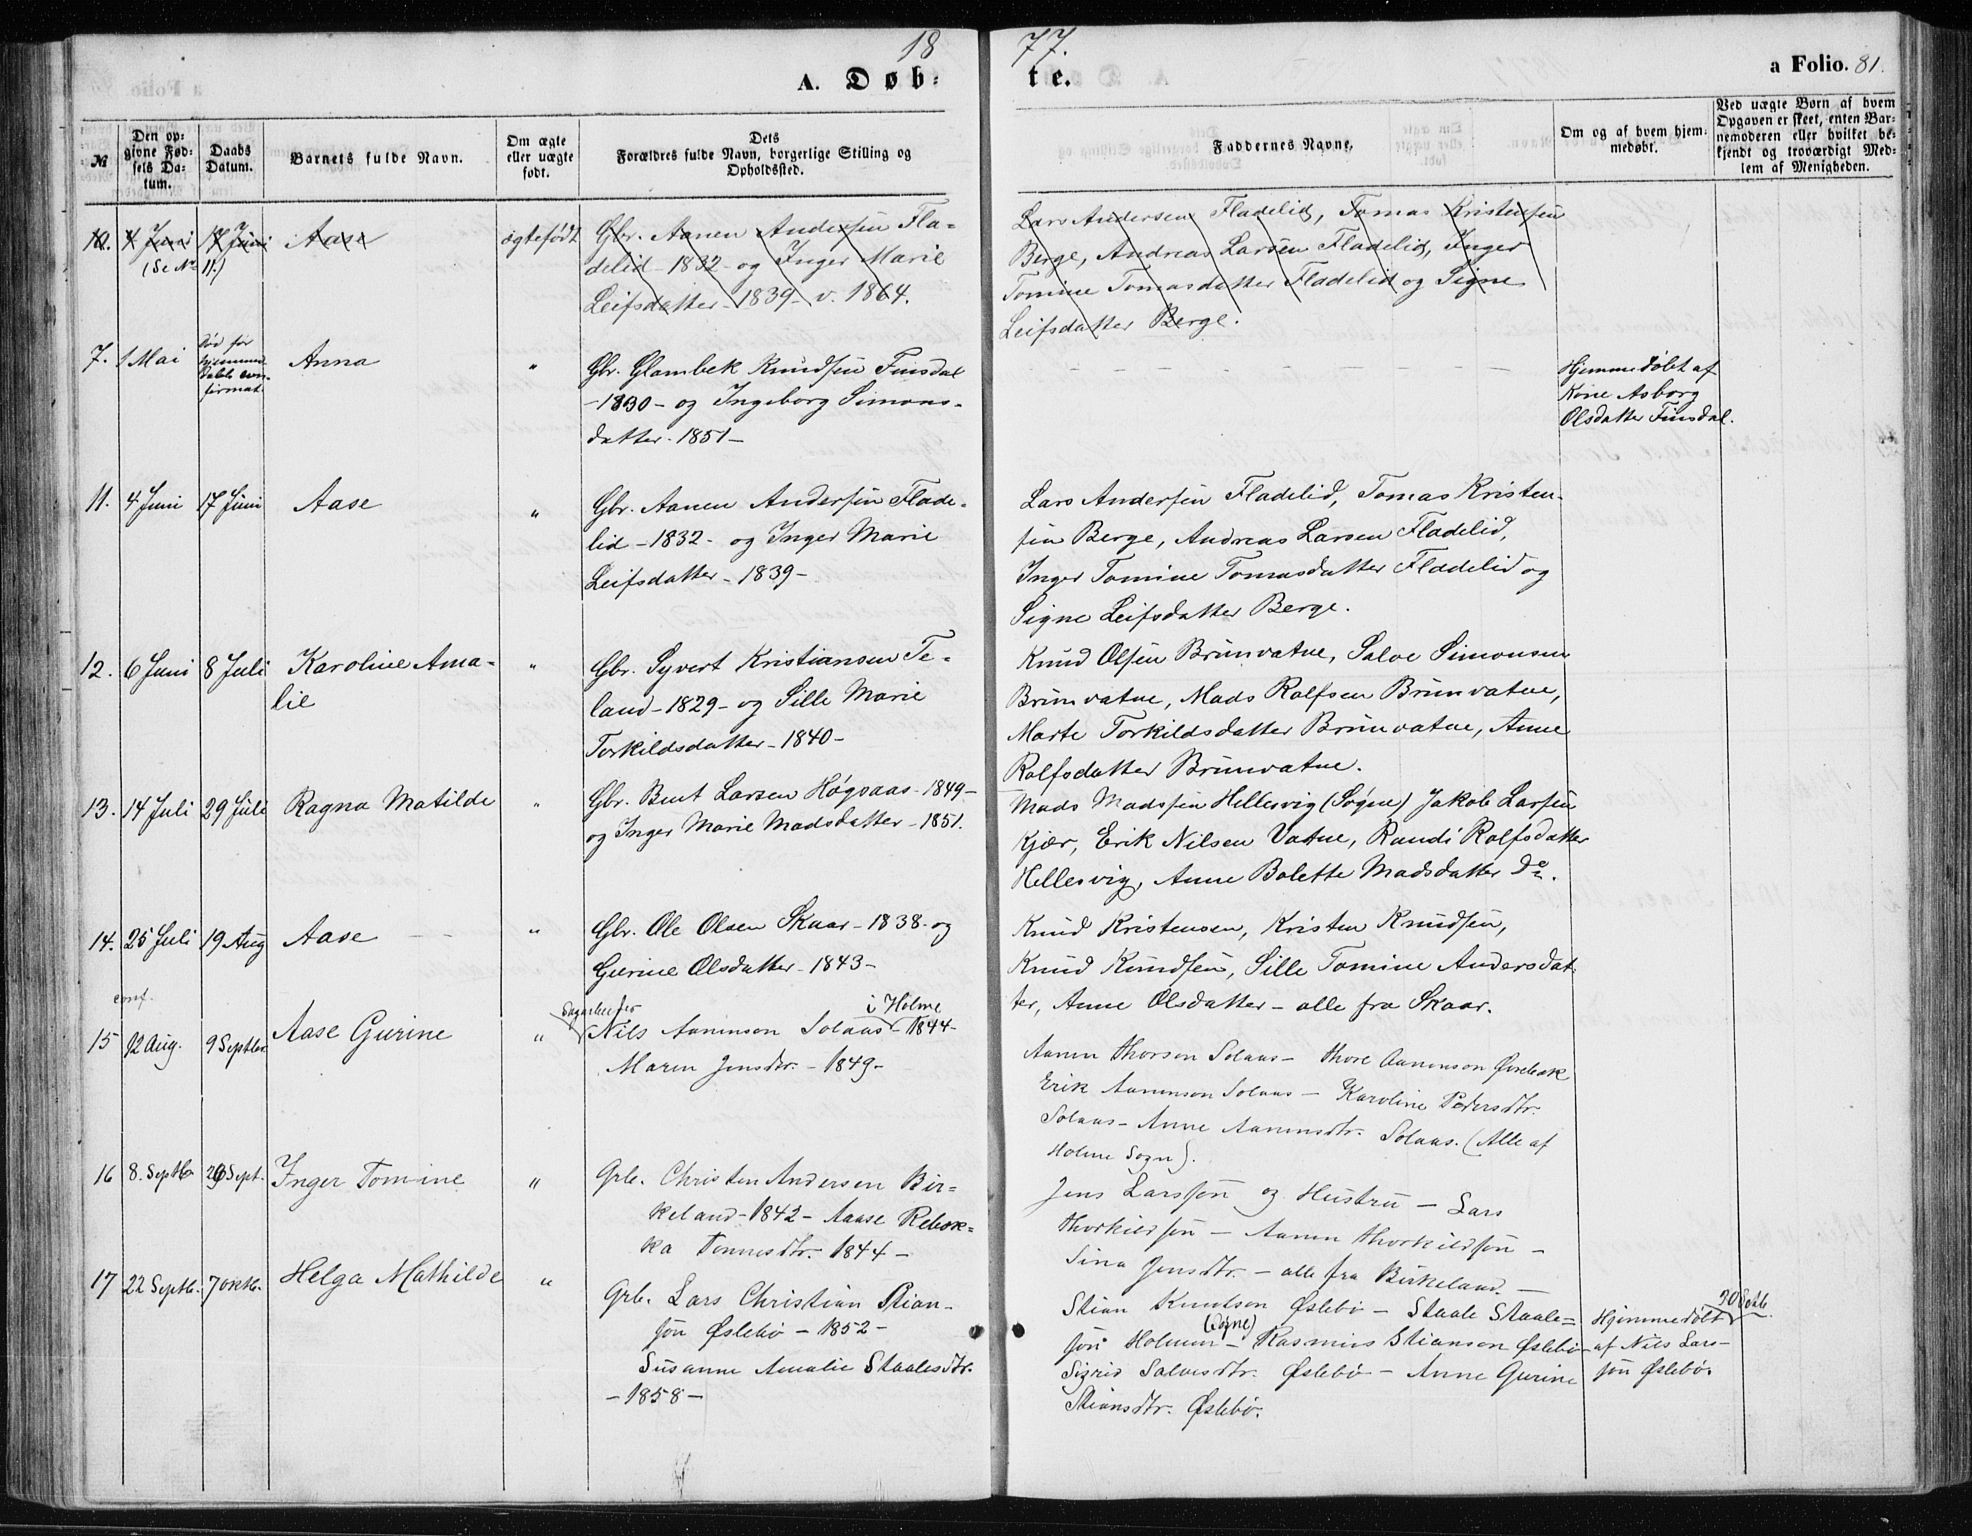 1877.
A. Døbte.
a Folio. 81.
№
Den opgivne Fødsels Datum.
Daabs Datum.
Barnets fulde Navn.
Om ægte eller uægte født.
Dets Forældres fulde Navn, borgerlige Stilling og Opholdssted.
Faddernes Navne.
Om og af hvem hjemmedøbt.
Ved uægte Børn af hvem Opgaven er skeet, enten Barnemoderen eller hvilket bekjendt og troværdigt Medlem af Menigheden.
10. 4 Juni 17 Juni Aase ægtefødt
(Se № 11.)
Gbr. Aanen Andersen Fla-
delid 1832 og Inger Marie
Leifsdatter 1839 v. 1864.
Lars Andersen Fladelid, Tomas Kristensen
Berge, Andreas Larsen Fladelid, Inger
Tomine Tomasdatter Fladelid og Signe
Leifsdatter Berge.
7. 1 Mai
Død før
hjemme
daab con-
firmat
Anna "
Gbr. Glambek Knudsen Finsdal
-1830- og Ingeborg Simons-
datter. 1851-
Hjemmedøbt af
Kone Asborg
Olsdatter Finsdal.
11. 4 Juni 17 Juni Aase "
Gbr. Aanen Andersen Flade-
lid -1832- og Inger Marie
Leifsdatter -1839-
Lars Andersen Fladelid, Tomas Kristen-
sen Berge, Andreas Larsen Fladelid,
Inger Tomine Tomasdatter Fladelid og
Signe Leifsdatter Berge.
12. 6 Juni 8 Juli Karoline Ama-
lie "
Gbr. Syvert Kristiansen Te-
land -1829- og Sille Marie
Torkildsdatter -1840-
Knud Olsen Brunvatne, Salve Simonsen
Brunvatne, Mads Rolfsen Brunvatne,
Marte Torkildsdatter Brunvatne, Anne
Rolfsdatter Brunvatne.
13. 14 Juli 29 Juli Ragna Matilde "
Gbr. Bent Larsen Høgsaas -1849-
og Inger Marie Madsdatter -1851.
Mads Madsen Hellesvig (Søgne) Jakob Larsen
Kjær, Erik Nilsen Vatne, Randi Rolfsdatter
Hellesvig, Anne Bolette Madsdatter Do.
14. 25 Juli 19 Aug Aase "
Gbr. Ole Olsen Skaar -1838- og
Gurine Olsdatter -1843-
Knud Kristensen, Kristen Knudsen,
Knud Knudsen, Sille Tomine Andersdat-
ter, Anne Olsdatter - alle fra Skaar.
conf.
15 12 Aug. 9 Septbr. Aase Gurine "
i Holme
Nils Aanenson Solaas -1844-
Maren Jensdtr. -1849-
Aanen Thorson Solaas - Thore Aanenson Øvrebøk
Erik Aanenson Solaas - Karoline Pedersdtr.
Solaas - Anne Aanensdtr. Solaas. (Alle af
Holme Sogn).
16 8. Septbr Sept. Inger Tomine "
Grb. Christen Andersen Bir-
keland -1842- Aase Rebek-
ka Tønnesdtr. 1844-
Jens Larssøn og Hustru - Lars
Thorkildsøn - Aanen Thorkildsøn -
Sina Jensdtr. - alle fra Birkeland. -
17 22 Septb. 7 Oktb. Helga Mathilde "
Grb. Lars Christian Stian-
søn Øslebø - 1852 -
Susanne Amalie Staalesdtr.
- 1858 -
Stian Knudson Øslebø - Staale Staale-
(Søgne)
søn Holmen - Rasmus Stianson Øslebø
Sigrid Salvesdtr. Øslebø - Anne Gurine
Stiansdtr. Øslebø.
Hjemmedøbt
af Nils Lars-
søn Øslebø.